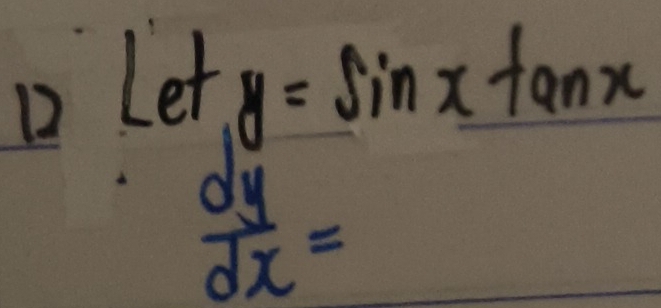 12 Let y = sin x tan x
dy/dx =